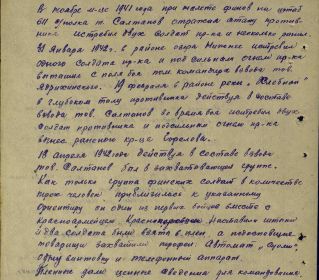 В ноябре м-це 1941 года при налете финов на штаб
611 С/полка т. Салтанов отражая атаку против-
ника истребил двух солдат пр-ка и несколько ранил.
31 января 1942г. в районе озера истребил
одного солдата пр-ка и под сильным огнем пр-ка
вытащил с поля боя ком командира взвода тов.
19 февраля в районе реки "Хлебная"
в глубоком тылу противника действуя в составе
взвода тов. Салтанов во время боя истребил двух
солдат противника и под сильным огнем пр-ка
вынес раненого кр-ца Горелова.
13 апреля 1942 года действуя в составе взвода
тов. Салтанов был в захватывающей группе.
Как только группа финских солдат в количестве
человек приблизилась к указанному
ориентиру он один из первых бойцов вместе с
красноармейцем наставили штыки
и два солдата были взяты в плен, а подоспевшие
товарищи захватили трофеи: Автомат "Суоми",
одну винтовку и телефонный аппарат.
Пленные дали ценные сведения для командования.